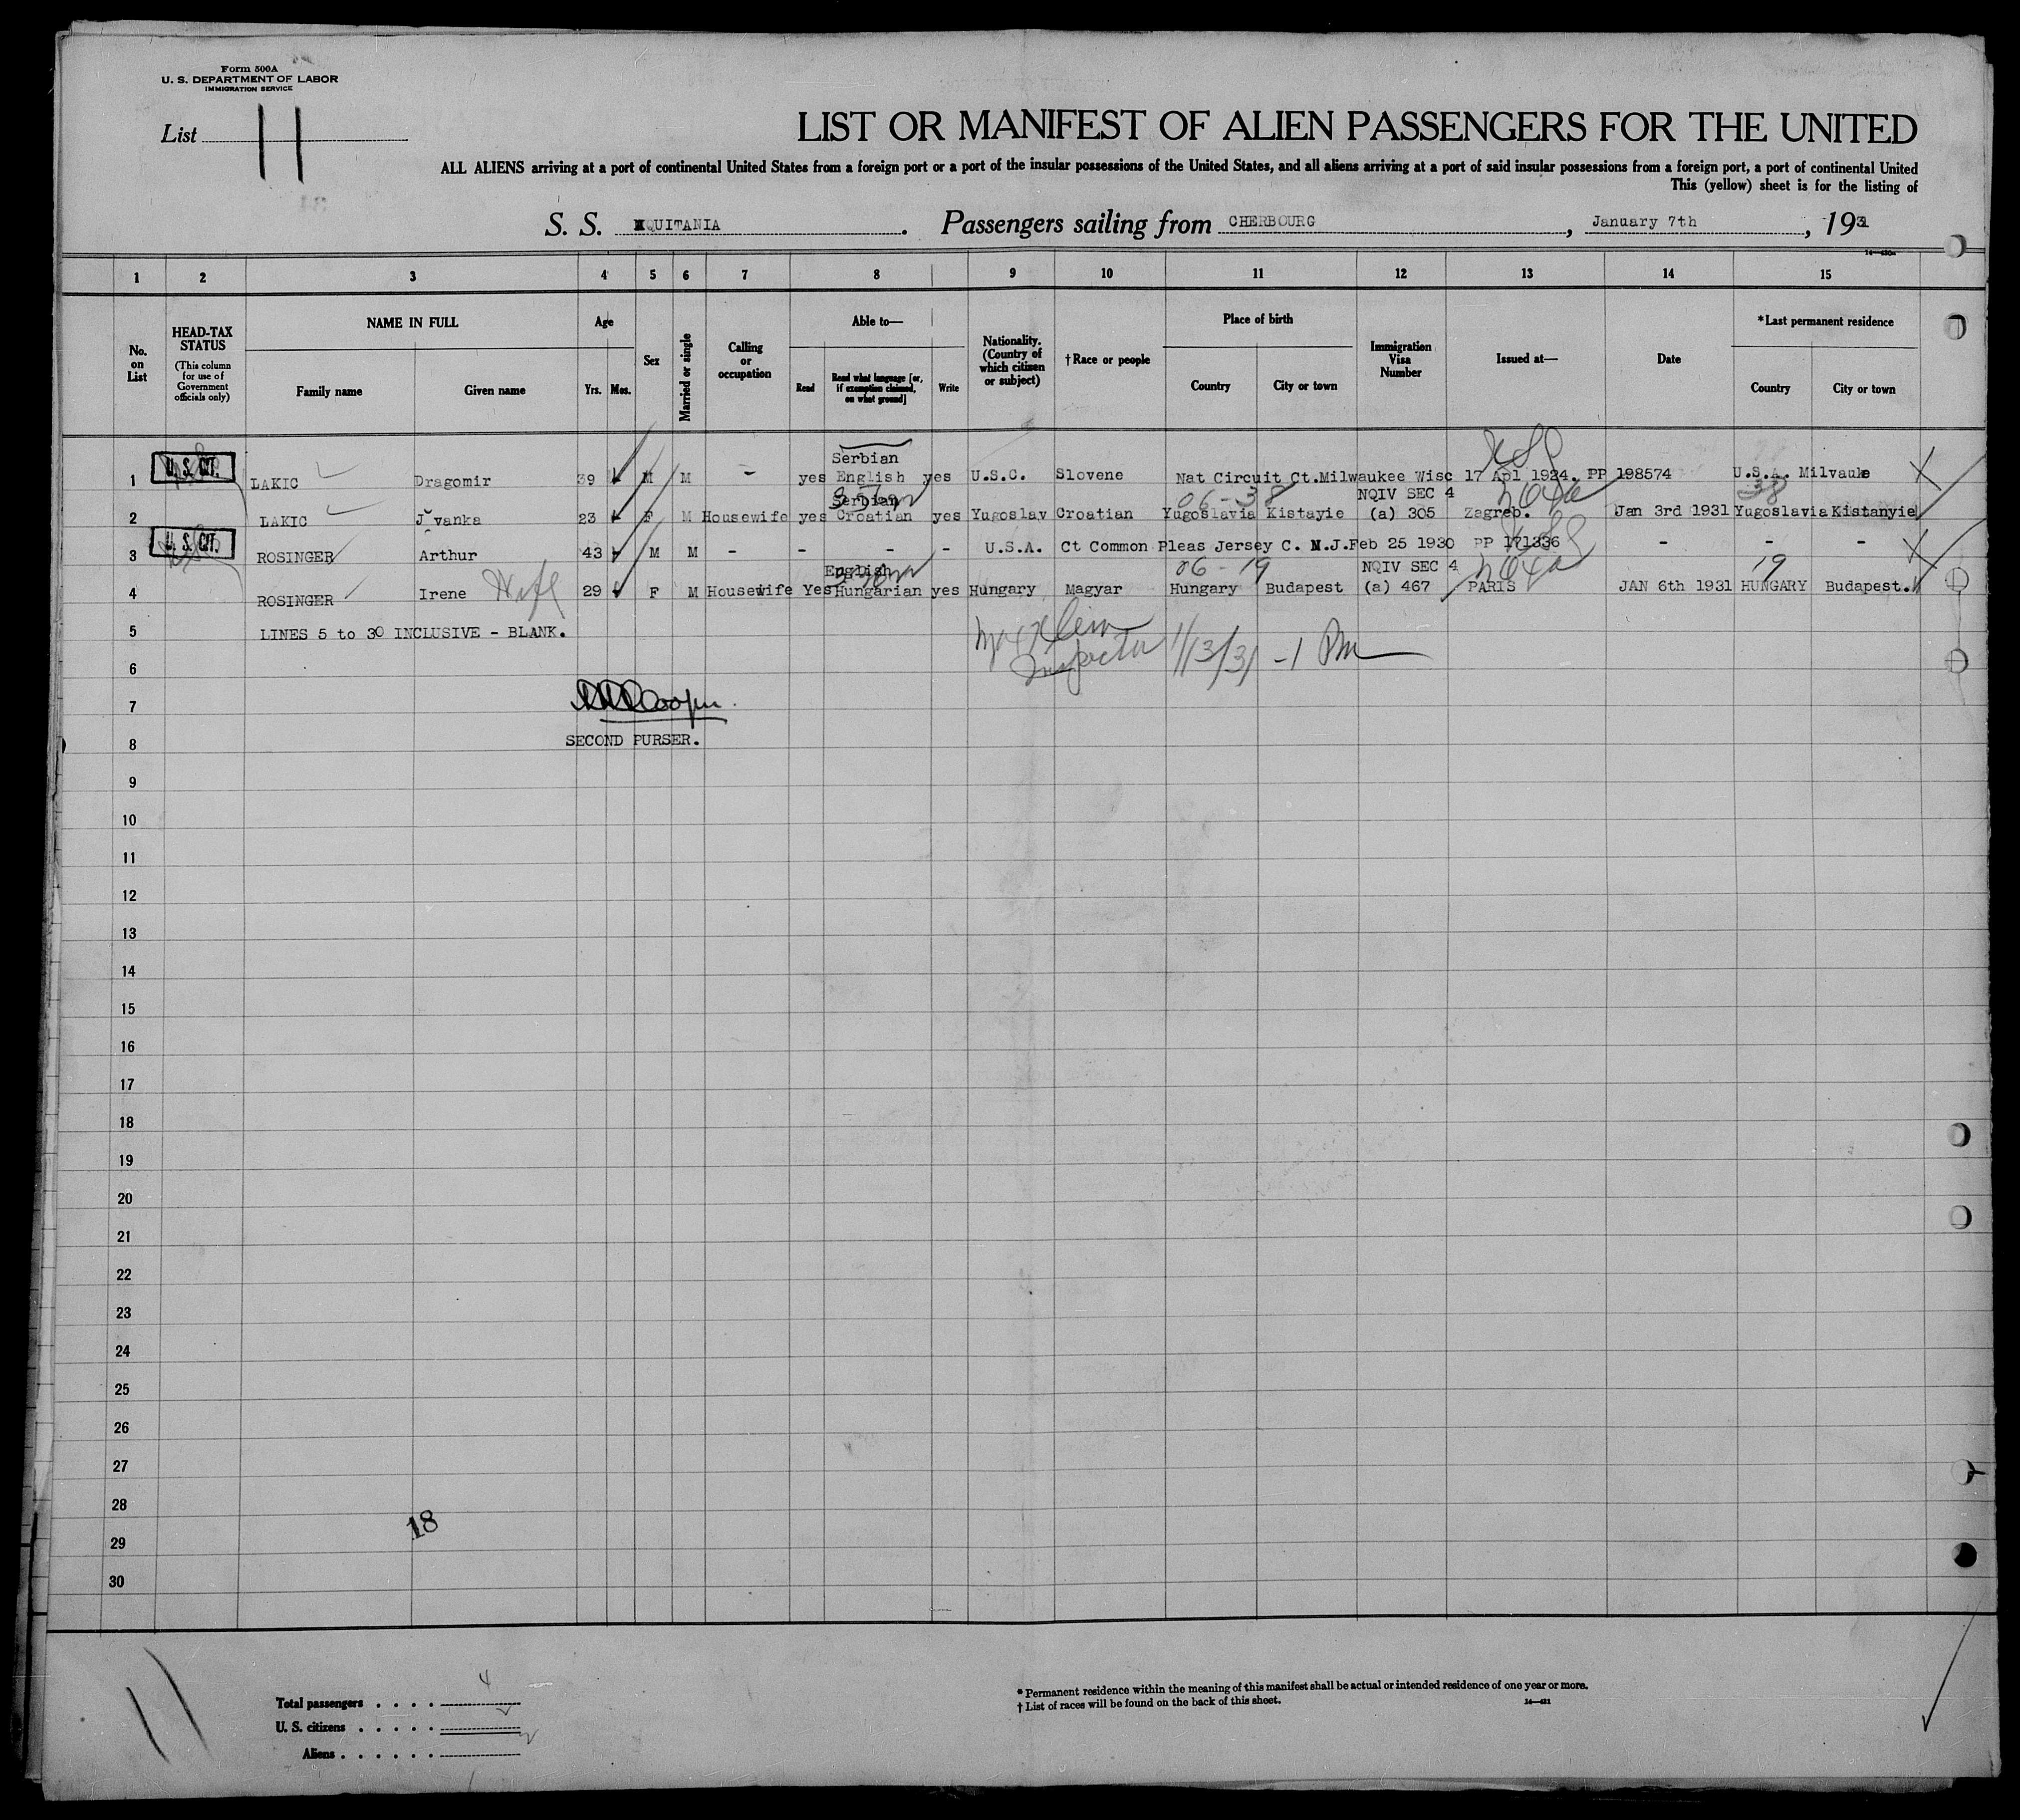 Form 500A
U. S. DEPARTMENT OF LABOR
IMMIGRATION SERVICE
List 11
LIST OR MANIFEST OF ALIEN PASSENGERS FOR THE UNITED
ALL ALIENS arriving at a port of continental United States from a foreign port or a port of the insular possessions of the United States, and all aliens arriving at a port of said insular possessions from a foreign port, a port of continental United
This (yellow) sheet is for the listing of
S. S. QUITANIA. Passengers sailing from CHERBOURG, January 7th, 1931
1 2 3 4 5 6 7 8 9 10 11 12 13 14 15
No. on List
HEAD-TAX STATUS
(This column for use of Government officials only)
NAME IN FULL
Family name Given name
Age
Yrs. Mos.
Sex
Married or single
Calling or occupation
Able to—
Read Read what language [or, if exemption claimed, on what ground] Write
Nationality. (Country of which citizen or subject)
†Race or people
Place of birth
Country City or town
Immigration Visa Number
Issued at—
Date
*Last permanent residence
Country City or town
Serbian
1 U. S. CIT. LAKIC Dragomir 39 M M - yes English yes U.S.C. Slovene Nat Circuit Ct.Milwaukee Wisc 17 Apl 1924. PP 198574 U.S.A. Milvauke
Serbian 06-38 NQIV SEC 4 38
2 LAKIC Jvanka 23 F M Housewife yes Croatian yes Yugoslav Croatian Yugoslavia Kistayie (a) 305 Zagreb. Jan 3rd 1931 Yugoslavia Kistanyie
3 U. S. CIT. ROSINGER Arthur 43 M M - - - - U.S.A. Ct Common Pleas Jersey C. N.J.Feb 25 1930 PP 171336 - - -
English 06-19 NQIV SEC 4 19
4 ROSINGER Irene Wife 29 F M Housewife Yes Hungarian yes Hungary Magyar Hungary Budapest (a) 467 PARIS JAN 6th 1931 HUNGARY Budapest.
5 LINES 5 to 30 INCLUSIVE - BLANK.
Inspector 1/13/31 -1 PM
6
7
Cooper.
8 SECOND PURSER.
9
10
11
12
13
14
15
16
17
18
19
20
21
22
23
24
25
26
27
28
18
29
30
11
Total passengers . . . . 4
U. S. citizens . . . . . 2
Aliens . . . . . . 2
*Permanent residence within the meaning of this manifest shall be actual or intended residence of one year or more.
†List of races will be found on the back of this sheet. 14—481